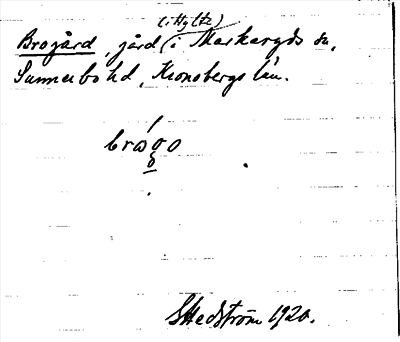 (i Hylte)
Brogård, gård i Markaryds sn,
Sunnerbo hd, Kronobergs län.
Hedström 1920.